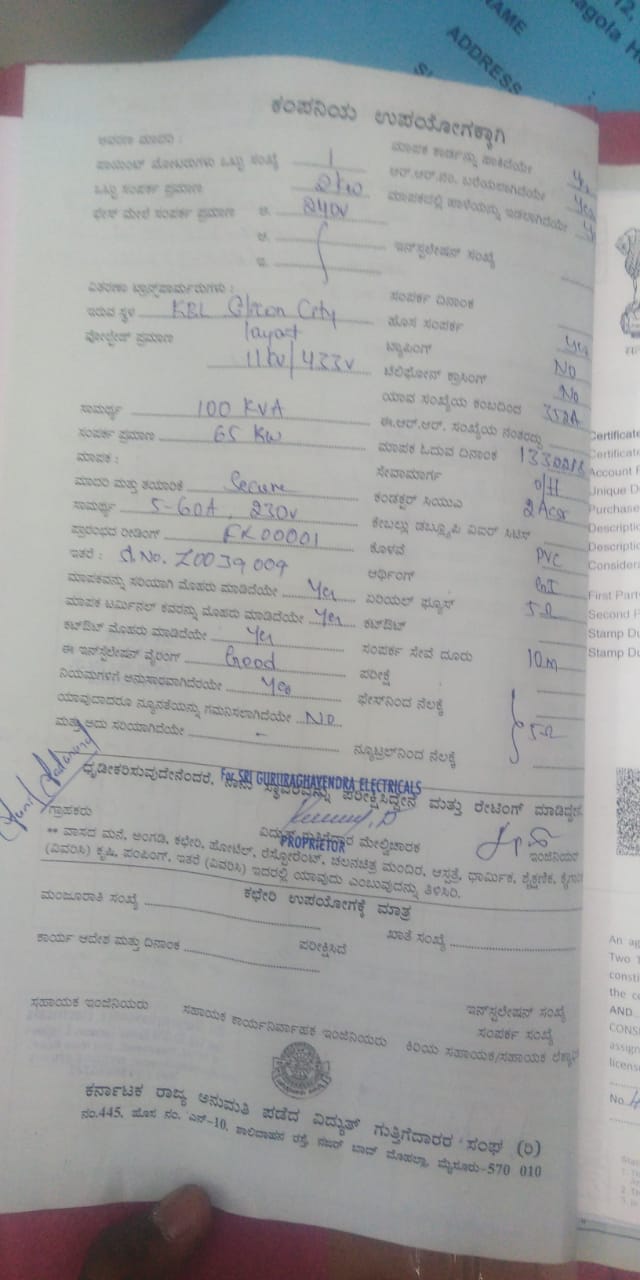 NAME
ADDRESS
ಕಂಪನಿಯ ಉಪಯೋಗಕ್ಕಾಗಿ
ಆವರಣ ಮಾದರಿ :
ಪಾಯಿಂಟ್ ಮೋಟರುಗಳು ಒಟ್ಟು ಸಂಖ್ಯೆ 1
ಒಟ್ಟು ಸಂಪರ್ಕ ಪ್ರಮಾಣ 2kw
ಫೇಸ್ ಮೇಲೆ ಸಂಪರ್ಕ ಪ್ರಮಾಣ ಆ. 240v
ವಿತರಣಾ ಟ್ರಾನ್ಸ್‌ಫಾರ್ಮರುಗಳು :
ಇರುವ ಸ್ಥಳ KBL City
layout
ವೋಲ್ಟೇಜ್ ಪ್ರಮಾಣ 11kv/433v
ಸಾಮರ್ಥ್ಯ 100 KVA
ಸಂಪರ್ಕ ಪ್ರಮಾಣ 65 Kw
ಮಾಪಕ :
ಮಾದರಿ ಮತ್ತು ತಯಾರಿಕೆ Secure
ಸಾಮರ್ಥ್ಯ 5-60A, 230v
ಪ್ರಾರಂಭದ ರೀಡಿಂಗ್ FR00001
ಇತರೆ : S.No. Z0039009
ಮಾಪಕವನ್ನು ಸರಿಯಾಗಿ ಮೊಹರು ಮಾಡಿದೆಯೇ Yes
ಮಾಪಕ ಟರ್ಮಿನಲ್ ಕವರನ್ನು ಮೊಹರು ಮಾಡಿದೆಯೇ Yes
ಕಟ್‌ಔಟ್ ಮೊಹರು ಮಾಡಿದೆಯೇ Yes
ಈ ಇನ್‌ಸ್ಟಲೇಷನ್ ವೈರಿಂಗ್ Good
ನಿಯಮಗಳಿಗೆ ಅನುಸಾರವಾಗಿದೆರಯೇ Yes
ಯಾವುದಾದರೂ ನ್ಯೂನತೆಯನ್ನು ಗಮನಿಸಲಾಗಿದೆಯೇ NO
ಮತ್ತು ಅದು ಸರಿಯಾಗಿದೆಯೇ -
ಮಾಪಕ ಕಾರ್ಡನ್ನು ಹಾಕಿದೆಯೇ
ಆರ್.ಆರ್.ನಂ. ಬರೆಯಲಾಗಿದೆಯೇ Yes
ಮಾಪಕದಲ್ಲಿ ಹಾಳೆಯನ್ನು ಇಡಲಾಗಿದೆಯೇ
ಇನ್‌ಸ್ಟಲೇಷನ್ ಸಂಖ್ಯೆ
ಸಂಪರ್ಕ ದಿನಾಂಕ
ಹೊಸ ಸಂಪರ್ಕ Yes
ಟ್ಯಾಪಿಂಗ್ NO
ಟೆಲಿಫೋನ್ ಕ್ರಾಸಿಂಗ್ No
ಯಾವ ಸಂಖ್ಯೆಯ ಕಂಬದಿಂದ
ಈ.ಆರ್.ಆರ್. ಸಂಖ್ಯೆಯ ನಂತರದ್ದು
ಮಾಪಕ ಓದುವ ದಿನಾಂಕ
ಸೇವಾಮಾರ್ಗ O/H
ಕಂಡಕ್ಟರ್ ಸಿಯುಎ
ಕೇಬಲ್ಲು ಡಬ್ಲ್ಯೂಪಿ ವಿಐರ್ ಸಿಟಿಸ್
ಕೊಳವೆ PVC
ಆರ್ಥಿಂಗ್ GI
ಏರಿಯಲ್ ಫ್ಯೂಸ್
ಕಟ್‌ಔಟ್
ಸಂಪರ್ಕ ಸೇವೆ ದೂರು 10m
ಪರೀಕ್ಷೆ
ಫೇಸ್‌ನಿಂದ ನೆಲಕ್ಕೆ
ನ್ಯೂಟ್ರಲ್‌ನಿಂದ ನೆಲಕ್ಕೆ
For SRI GURURAGHAVENDRA ELECTRICALS
ಧೃಡೀಕರಿಸುವುದೇನೆಂದರೆ, ನಾನು ಸ್ಥಾವರವನ್ನು ಪರೀಕ್ಷಿಸಿದ್ದೇನೆ ಮತ್ತು ರೇಟಿಂಗ್ ಮಾಡಿದ್ದೇನೆ
ಗ್ರಾಹಕರು ವಿದ್ಯುತ್ ಗುತ್ತಿಗೆದಾರ ಮೇಲ್ವಿಚಾರಕ ಇಂಜಿನಿಯರ
PROPRIETOR
** ವಾಸದ ಮನೆ, ಅಂಗಡಿ, ಕಛೇರಿ, ಹೋಟೆಲ್, ರೆಸ್ಟೋರೆಂಟ್, ಚಲನಚಿತ್ರ ಮಂದಿರ, ಆಸ್ಪತ್ರೆ, ಧಾರ್ಮಿಕ, ಶೈಕ್ಷಣಿಕ,
(ವಿವರಿಸಿ) ಕೃಷಿ, ಪಂಪಿಂಗ್, ಇತರೆ (ವಿವರಿಸಿ) ಇದರಲ್ಲಿ ಯಾವುದು ಎಂಬುವುದನ್ನು ತಿಳಿಸಿರಿ.
ಕಛೇರಿ ಉಪಯೋಗಕ್ಕೆ ಮಾತ್ರ
ಮಂಜೂರಾತಿ ಸಂಖ್ಯೆ
ಖಾತೆ ಸಂಖ್ಯೆ
ಕಾರ್ಯ ಆದೇಶ ಮತ್ತು ದಿನಾಂಕ ಪರೀಕ್ಷಿಸಿದೆ
ಇನ್‌ಸ್ಟಲೇಷನ್ ಸಂಖ್ಯೆ
ಸಂಪರ್ಕ ಸಂಖ್ಯೆ
ಸಹಾಯಕ ಇಂಜಿನಿಯರು ಸಹಾಯಕ ಕಾರ್ಯನಿರ್ವಾಹಕ ಇಂಜಿನಿಯರು ಕಿರಿಯ ಸಹಾಯಕ/ಸಹಾಯಕ
ಕರ್ನಾಟಕ ರಾಜ್ಯ ಅನುಮತಿ ಪಡೆದ ವಿದ್ಯುತ್ ಗುತ್ತಿಗೆದಾರರ ಸಂಘ (ರಿ)
ನಂ.445, ಹೊಸ ನಂ. ಎನ್-10, ಶಾಲಿವಾಹನ ರಸ್ತೆ, ನಜರ್ ಬಾದ್ ಮೊಹಲ್ಲಾ, ಮೈಸೂರು-570 010
Certificate
Certificate
Account
Unique
Purchase
Description
First Party
Second
Stamp
Stamp
AND